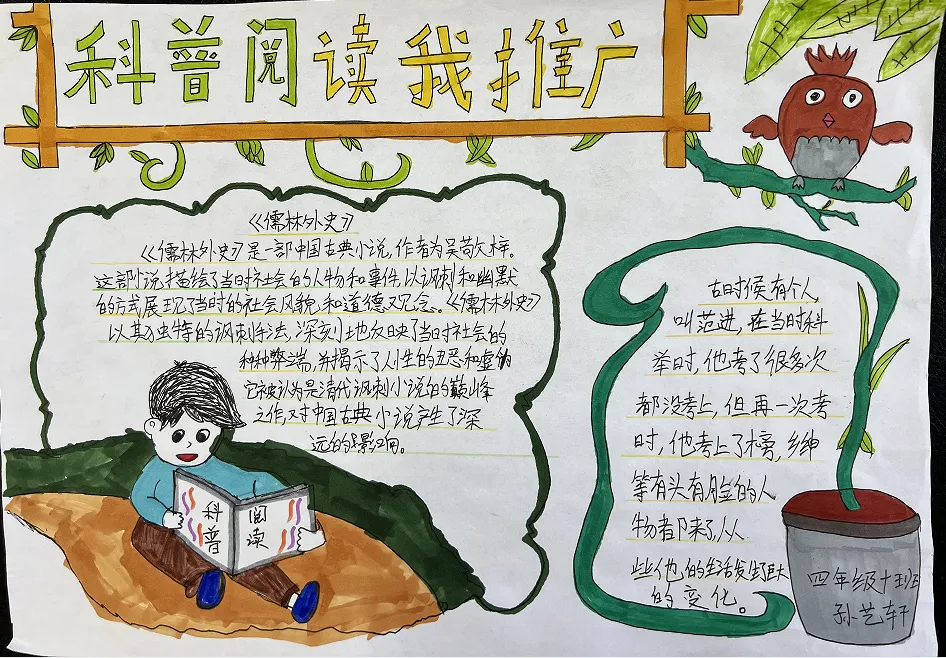 科普阅读我推广
《儒林外史》
《儒林外史》是一部中国古典小说,作者为吴敬梓。
这部小说描绘了当时社会的人物和事件,以讽刺和幽默
的方式展现了当时的社会风貌,和道德观念。《儒林外史》
以其独特的讽刺手法,深刻地反映了当时社会的
种种弊端,并揭示了人性的丑恶和虚伪
它被认为是清代讽刺小说的巅峰
之作,对中国古典小说产生了深
远的影响。
科普
阅读
古时候有个人
叫范进,在当时科
举时,他考了很多次
都没考上,但再一次考
时,他考上了榜,乡绅
等有头有脸的人
物都来了,从
些他的生活发生巨大
的变化。
四年级十班
孙艺轩